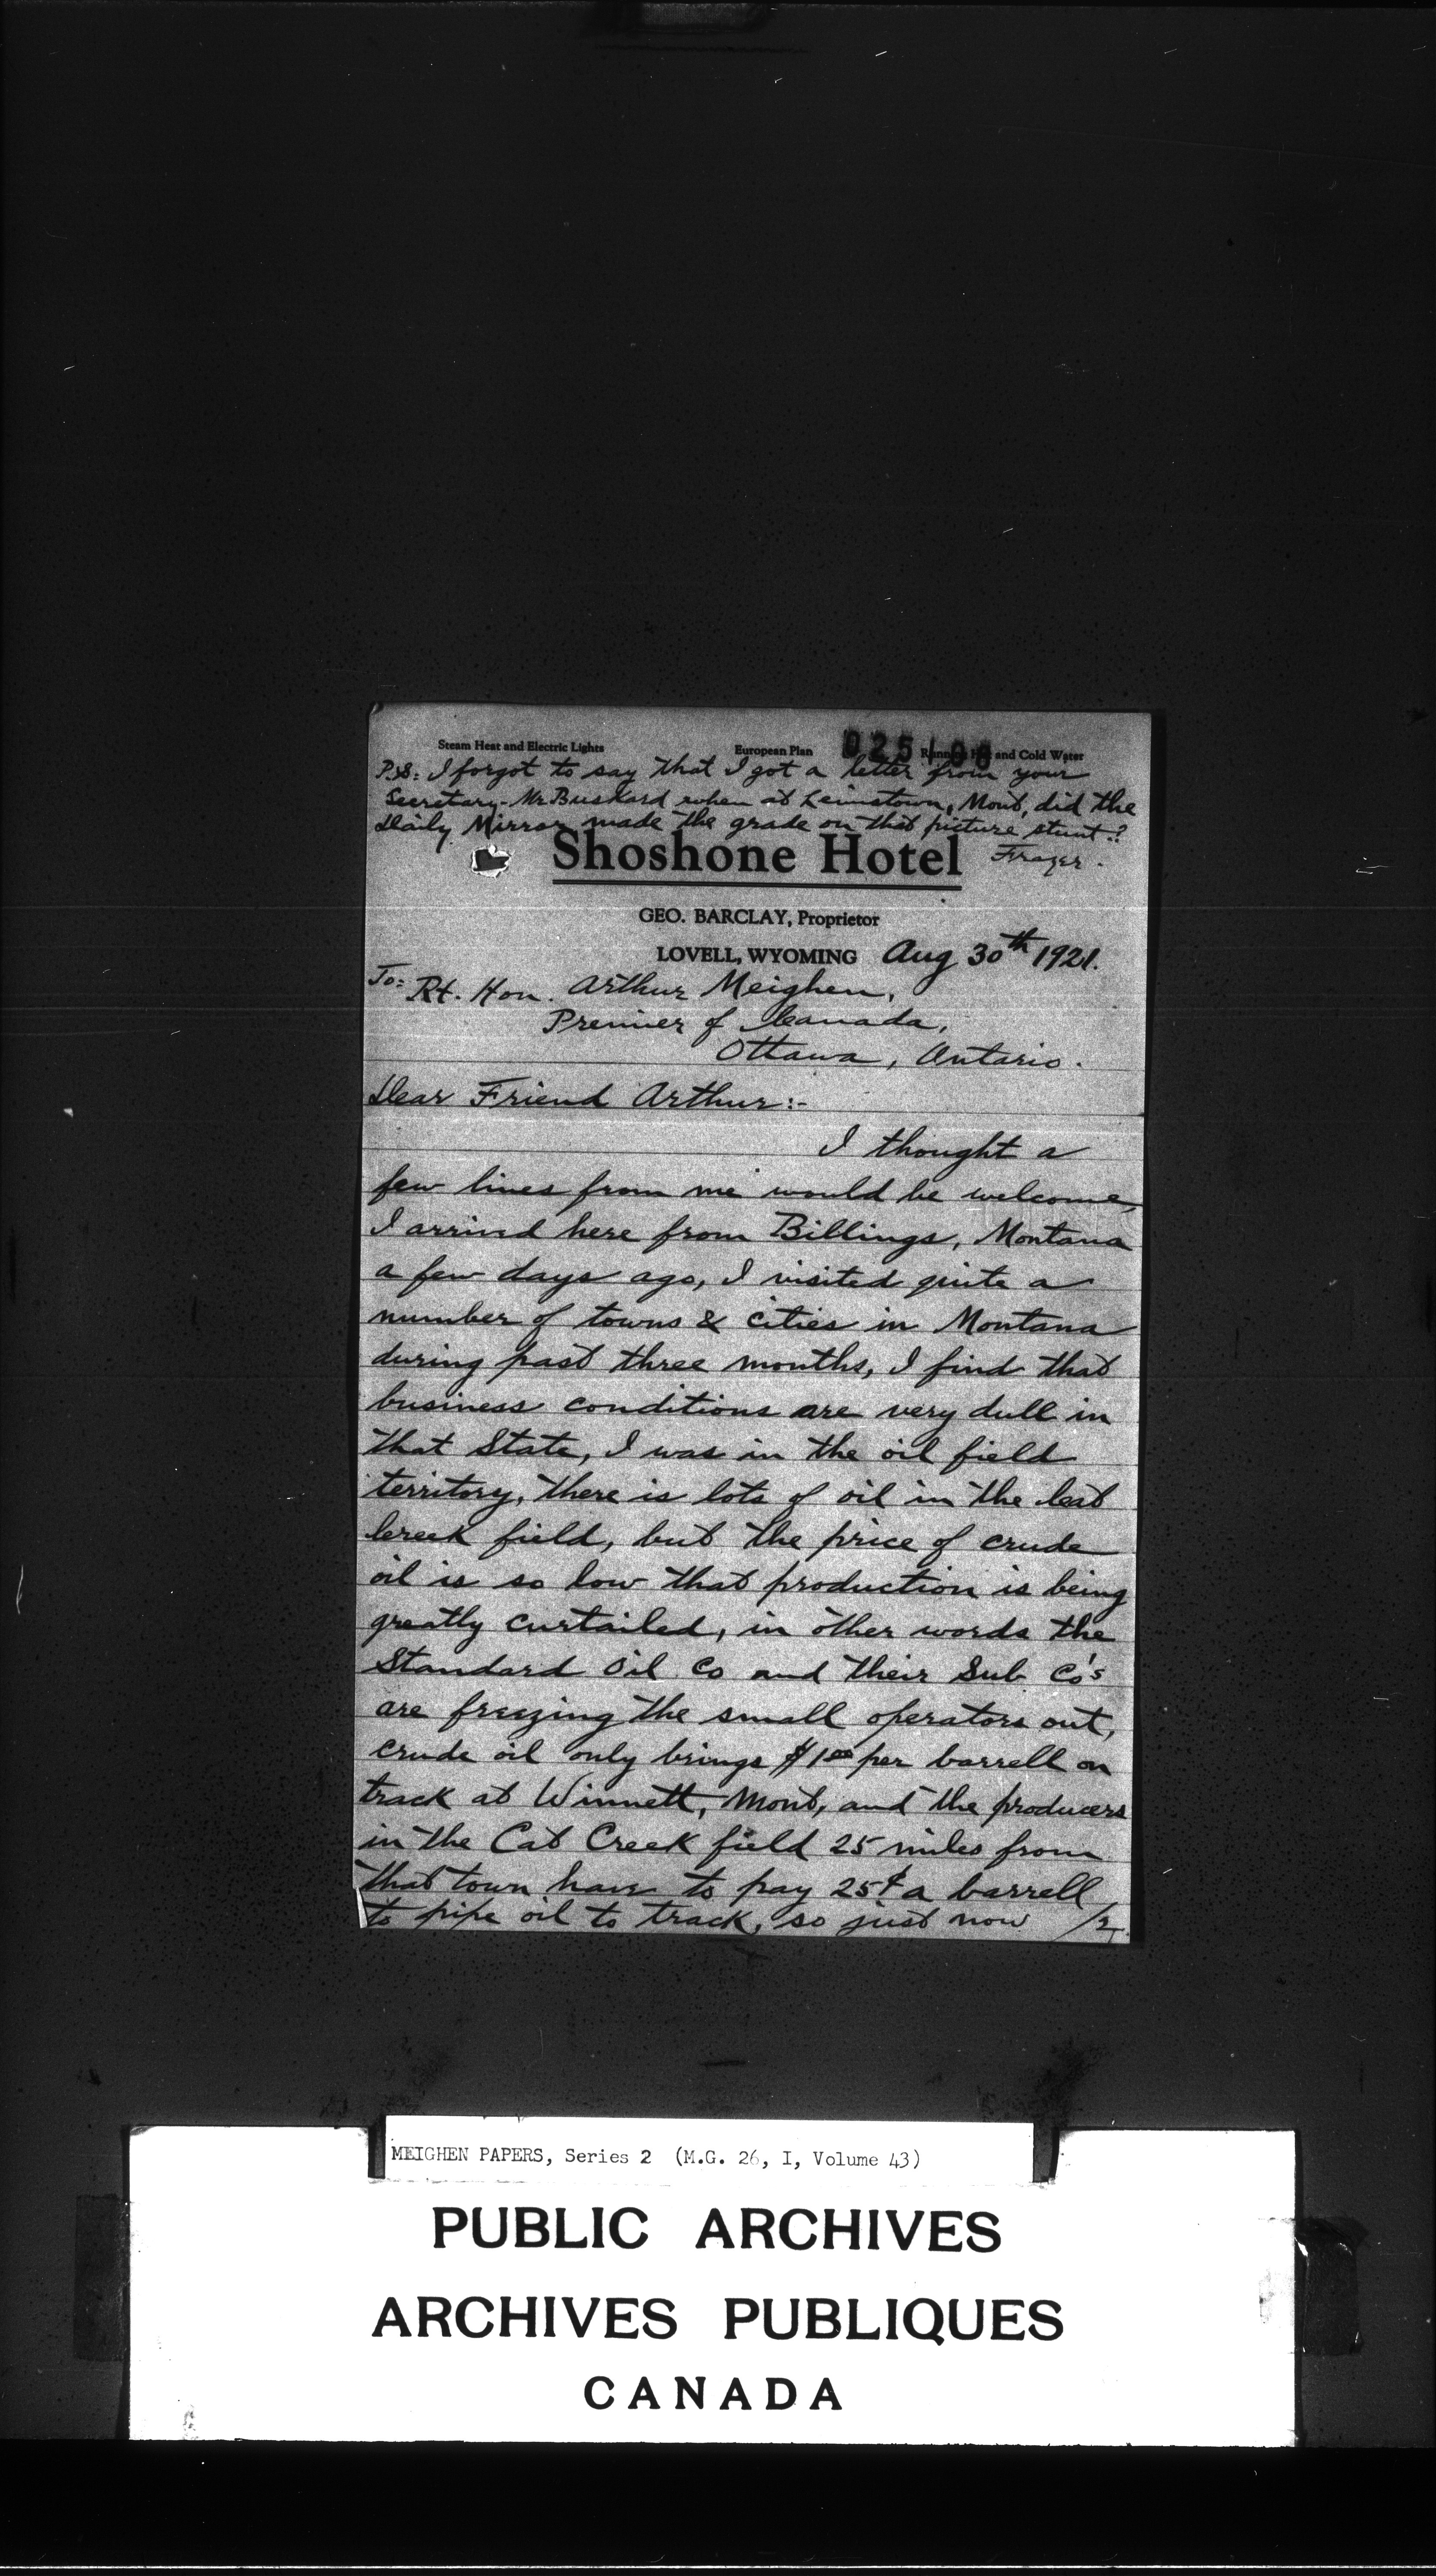 Steam Heat and Electric Lights European Plan Running Hot and Cold Water
P.S: I forgot to say that I got a letter from your
Secretary - Mr Buskard when at Lewistown, Mont, did the
Daily Mirror made the grade on that picture stunt?
Frazer.
Shoshone Hotel
GEO. BARCLAY, Proprietor
LOVELL, WYOMING Aug 30th 1921.
To: Rt. Hon. Arthur Meighen,
Premier of Canada,
Ottawa, Ontario.
Dear Friend Arthur:-
I thought a
few lines from me would be welcome,
I arrived here from Billings, Montana
a few days ago, I visited quite a
number of towns & cities in Montana
during past three months, I find that
business conditions are very dull in
that State, I was in the oil field
territory, there is lots of oil in the Cat
Creek field, but the price of crude
oil is so low that production is being
greatly curtailed, in other words the
Standard Oil Co and their Sub Co's
are freezing the small operators out,
crude oil only brings $1.00 per barrell on
track at Winnett, Mont, and the producers
in the Cat Creek field 25 miles from
that town have to pay 25¢ a barrell
to pipe oil to track, so just now /2
MEIGHEN PAPERS, Series 2 (M.G. 26, I, Volume 43)
PUBLIC ARCHIVES
ARCHIVES PUBLIQUES
CANADA